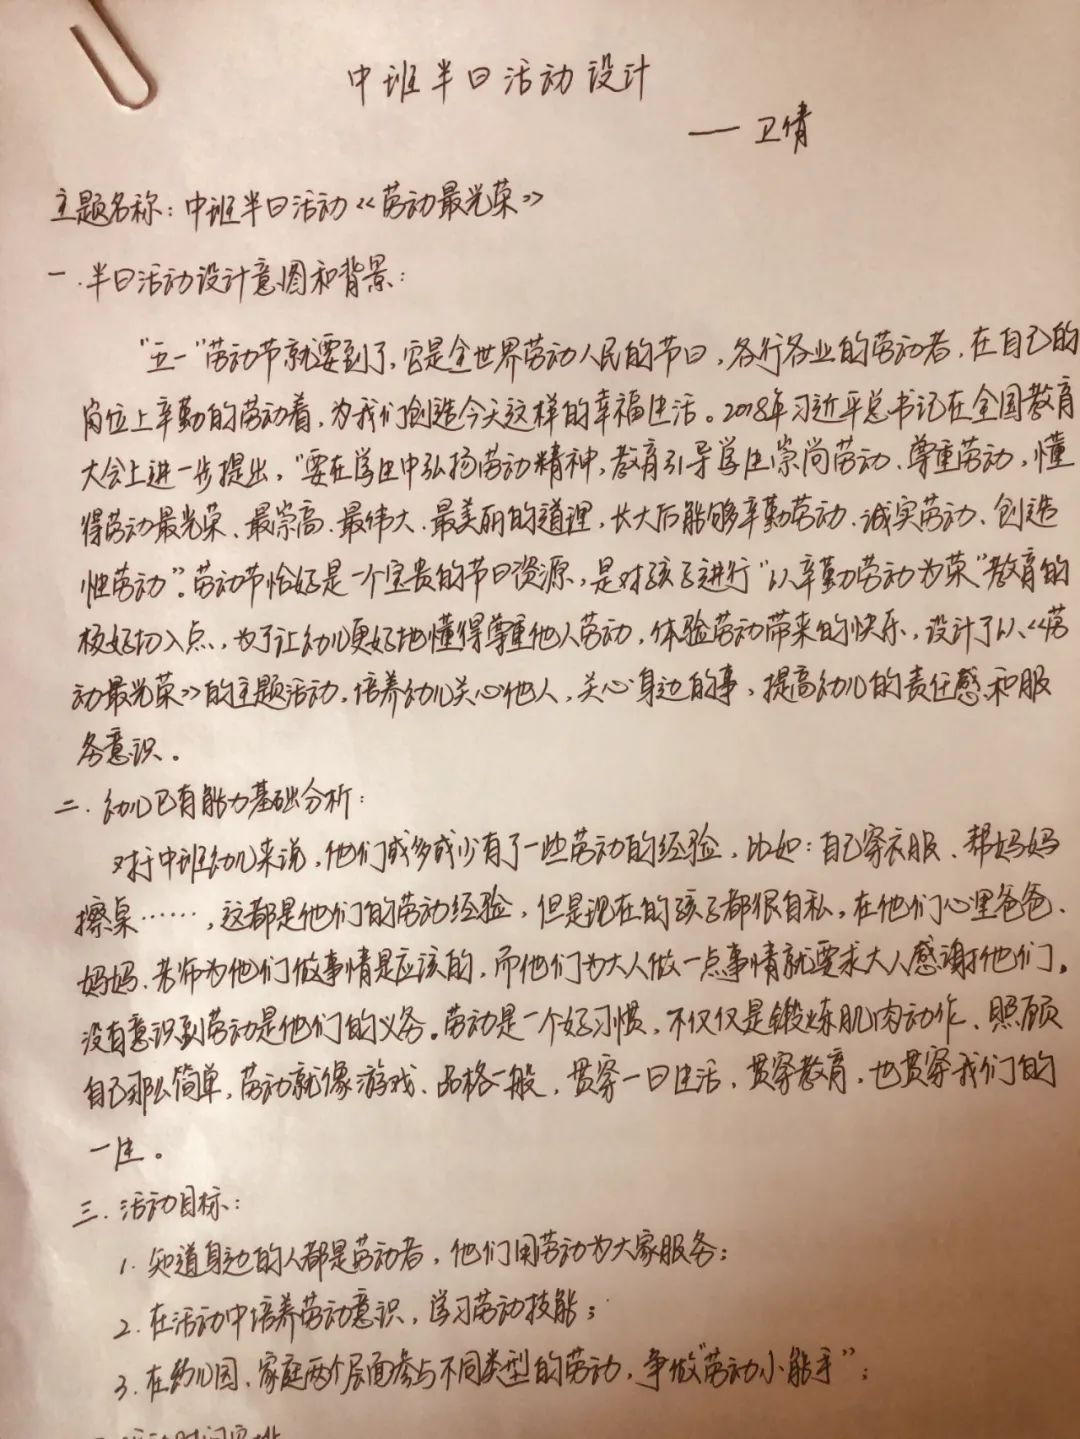 中班半日活动设计
—— 卫倩
主题名称：中班半日活动《劳动最光荣》
一.半日活动设计意图和背景：
“五一”劳动节就要到了，它是全世界劳动人民的节日，各行各业的劳动者，在自己的
岗位上辛勤的劳动着，为我们创造今天这样的幸福生活。2018年习近平总书记在全国教育
大会上进一步提出，“要在学生中弘扬劳动精神，教育引导学生崇尚劳动、尊重劳动，懂
得劳动最光荣、最崇高、最伟大、最美丽的道理，长大后能够辛勤劳动、诚实劳动、创造
性劳动”。劳动节恰好是一个宝贵的节日资源，是对孩子进行“以辛勤劳动为荣”教育的
极好切入点，为了让幼儿更好地懂得尊重他人劳动，体验劳动带来的快乐，设计了以《劳
动最光荣》的主题活动，培养幼儿关心他人，关心身边的事，提高幼儿的责任感和服
务意识。
二.幼儿已有能力基础分析：
对于中班幼儿来说，他们或多或少有了一些劳动的经验，比如：自己穿衣服、帮妈妈
擦桌……，这都是他们的劳动经验，但是现在的孩子都很自私，在他们心里爸爸、
妈妈、老师为他们做事情是应该的，而他们为大人做一点事情就要求大人感谢他们。
没有意识到劳动是他们的义务。劳动是一个好习惯，不仅仅是锻炼肌肉动作、照顾
自己那么简单，劳动就像游戏、品格一般，贯穿一日生活，贯穿教育，也贯穿我们的
一生。
三.活动目标：
1.知道身边的人都是劳动者，他们用劳动为大家服务；
2.在活动中培养劳动意识，学习劳动技能；
3.在幼儿园、家庭两个层面参与不同类型的劳动，争做“劳动小能手”；